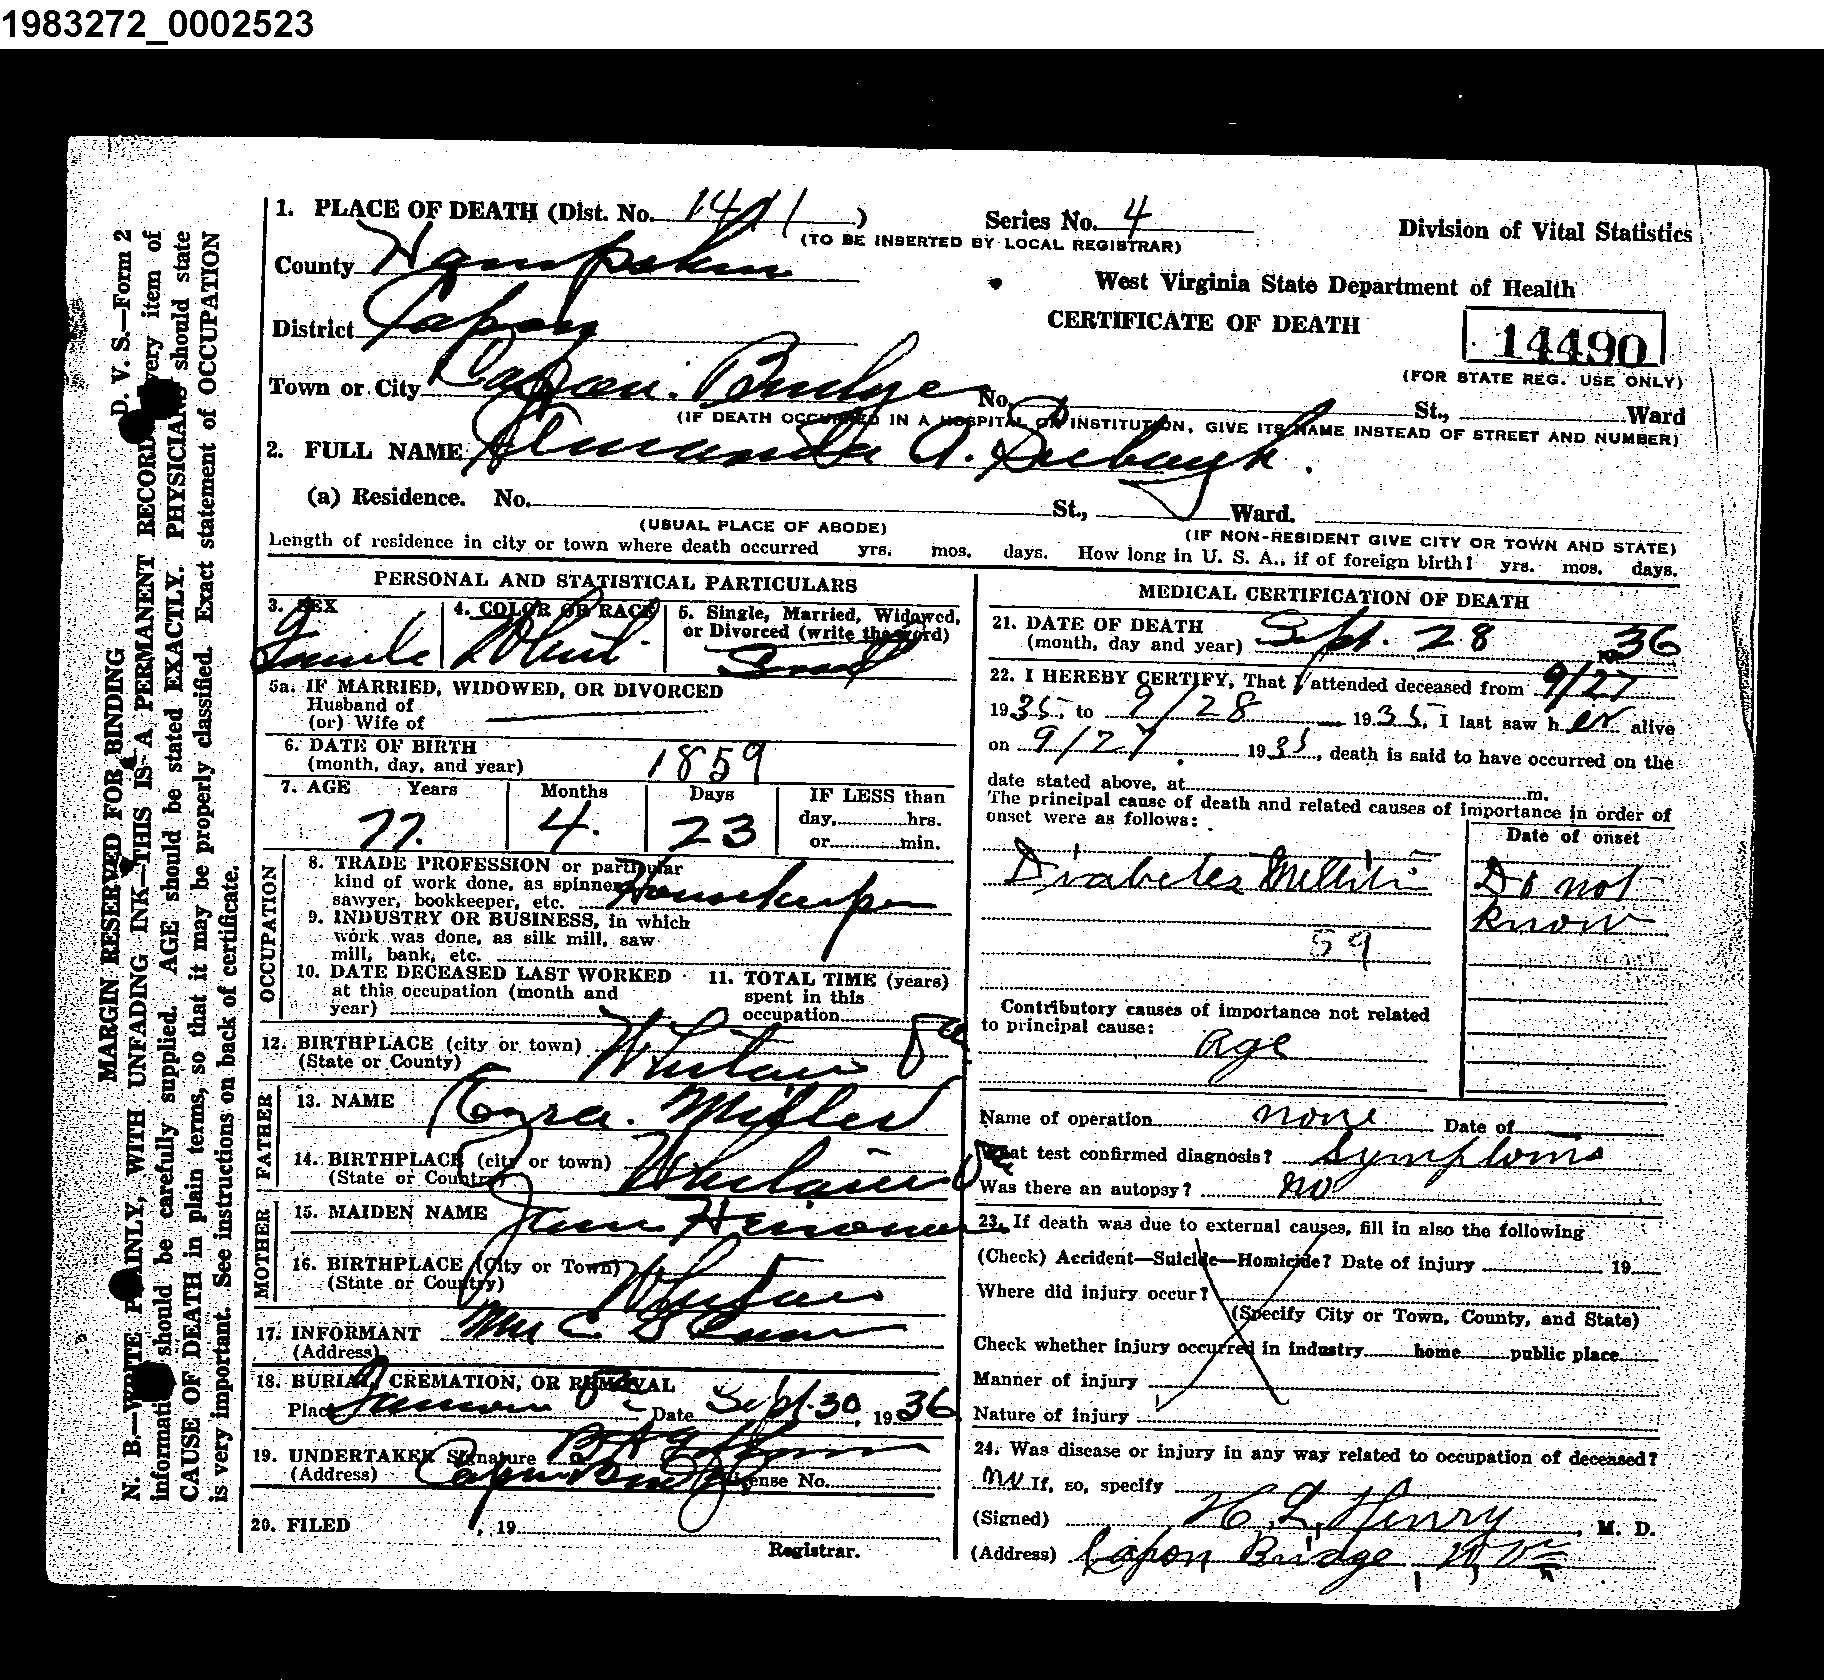 1983272_0002523
D. V. S.—Form 2
MARGIN RESERVED FOR BINDING
N. B.—WRITE PLAINLY, WITH UNFADING INK—THIS IS A PERMANENT RECORD. Every item of
information should be carefully supplied. AGE should be stated EXACTLY. PHYSICIANS should state
CAUSE OF DEATH in plain terms, so that it may be properly classified. Exact statement of OCCUPATION
is very important. See instructions on back of certificate.
1. PLACE OF DEATH (Dist. No. 1411 )
Series No. 4
(TO BE INSERTED BY LOCAL REGISTRAR)
Division of Vital Statistics
County Hampshire
West Virginia State Department of Health
CERTIFICATE OF DEATH
14490
(FOR STATE REG. USE ONLY)
District Capon
Town or City Capon Bridge No. St., Ward
(IF DEATH OCCURRED IN A HOSPITAL OR INSTITUTION, GIVE ITS NAME INSTEAD OF STREET AND NUMBER)
2. FULL NAME A.
(a) Residence. No. St., Ward.
(USUAL PLACE OF ABODE)
(IF NON-RESIDENT GIVE CITY OR TOWN AND STATE)
Length of residence in city or town where death occurred yrs. mos. days. How long in U. S. A., if of foreign birth? yrs. mos. days.
PERSONAL AND STATISTICAL PARTICULARS
3. SEX
Female
4. COLOR OR RACE
White
5. Single, Married, Widowed,
or Divorced (write the word)
5a. IF MARRIED, WIDOWED, OR DIVORCED
Husband of
(or) Wife of
6. DATE OF BIRTH
(month, day, and year) 1859
7. AGE Years Months Days IF LESS than
77. 4. 23
day, hrs.
or min.
OCCUPATION
8. TRADE PROFESSION or particular
kind of work done, as spinner,
sawyer, bookkeeper, etc. Housekeeper
9. INDUSTRY OR BUSINESS, in which
work was done, as silk mill, saw
mill, bank, etc.
10. DATE DECEASED LAST WORKED
at this occupation (month and
year)
11. TOTAL TIME (years)
spent in this
occupation
12. BIRTHPLACE (city or town) Va
(State or County)
FATHER
13. NAME Ezra Miller
14. BIRTHPLACE (city or town) Va
(State or Country)
MOTHER
15. MAIDEN NAME Jane
16. BIRTHPLACE (City or Town)
(State or Country)
17. INFORMANT
(Address)
18. BURIAL, CREMATION, OR REMOVAL
Place Va Date Sept. 30, 1936
19. UNDERTAKER Signature
(Address) Capon Bridge License No.
20. FILED , 19
Registrar.
MEDICAL CERTIFICATION OF DEATH
21. DATE OF DEATH
(month, day and year) Sept. 28 36
22. I HEREBY CERTIFY, That I attended deceased from 9/27
1935, to 9/28 1935, I last saw her alive
on 9/27, 1935, death is said to have occurred on the
date stated above, at m.
The principal cause of death and related causes of importance in order of
onset were as follows:
Date of onset
Diabetes Do not
know
59
Contributory causes of importance not related
to principal cause:
Age
Name of operation none Date of
What test confirmed diagnosis? Symptoms
Was there an autopsy? no
23. If death was due to external causes, fill in also the following
(Check) Accident—Suicide—Homicide? Date of injury 19
Where did injury occur?
(Specify City or Town, County, and State)
Check whether injury occurred in industry home public place
Manner of injury
Nature of injury
24. Was disease or injury in any way related to occupation of deceased?
no If, so, specify
(Signed) H. L. Henry, M. D.
(Address) Capon Bridge, W. Va